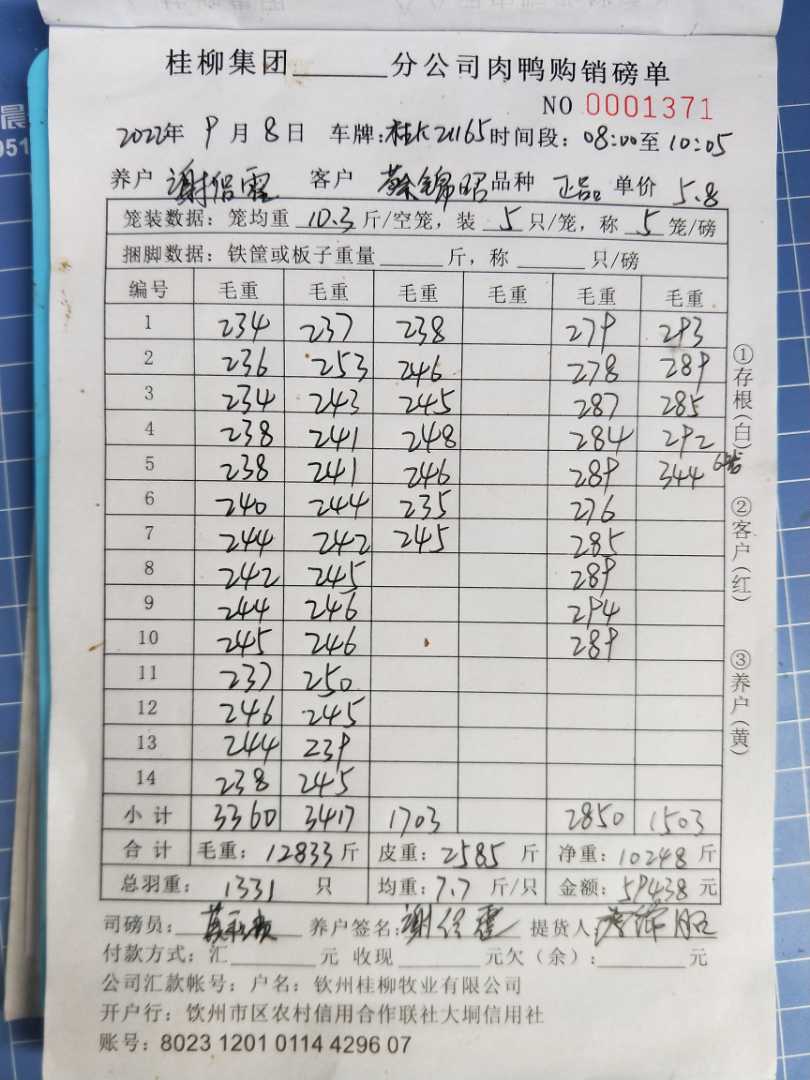 桂柳集团______分公司肉鸭购销磅单
NO 0001371
2022年 9月8日 车牌:桂K21165 时间段:08:00至10:05
养户 谢侣霆 客户 蔡锦昭 品种 正品 单价 5.8
笼装数据:笼均重 10.3 斤/空笼,装 5 只/笼,称 5 笼/磅
捆脚数据:铁筐或板子重量______斤,称______只/磅
编号 毛重 毛重 毛重 毛重 毛重 毛重
1 234 237 238 279 293
2 236 253 246 278 289
3 234 243 245 287 285
4 238 241 248 284 292
5 238 241 246 289 344
6 240 244 235 276
7 244 242 245 285
8 242 245 289
9 244 246 294
10 245 246 289
11 237 250
12 246 245
13 244 239
14 238 245
小计 3360 3417 1703 2850 1503
合计 毛重:12833斤 皮重:2585斤 净重:10248斤
总羽重:1331只 均重:7.7斤/只 金额:59438元
司磅员: 养户签名: 提货人:
付款方式:汇______元 收现______元欠(余):______元
公司汇款帐号:户名:钦州桂柳牧业有限公司
开户行:饮州市区农村信用合作联社大垌信用社
账号:8023 1201 0114 4296 07
①存根(白)
②客户(红)
③养户(黄)